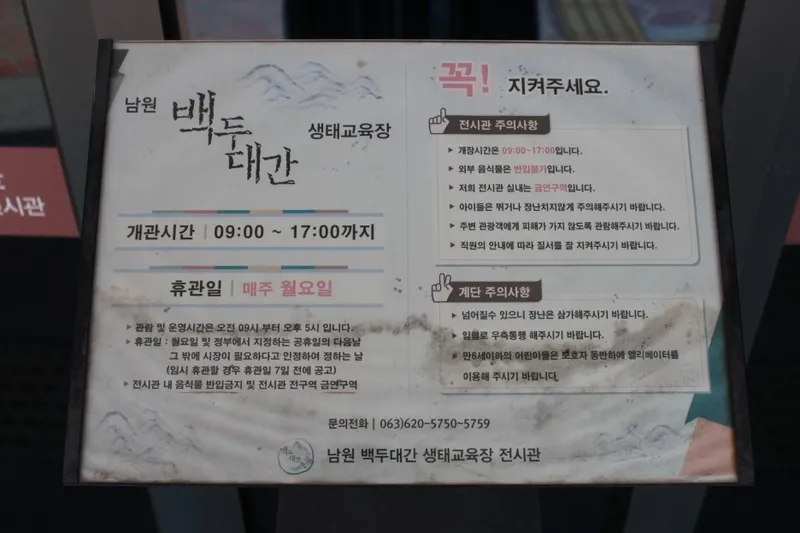 시관
남원 백두대간 생태교육장
개관시간 | 09:00 ~ 17:00까지
휴관일 | 매주 월요일
▶ 관람 및 운영시간은 오전 09시 부터 오후 5시 입니다.
▶ 휴관일 : 월요일 및 정부에서 지정하는 공휴일의 다음날
그 밖에 시장이 필요하다고 인정하여 정하는 날
(임시 휴관할 경우 휴관일 7일 전에 공고)
▶ 전시관 내 음식물 반입금지 및 전시관 전구역 금연구역
꼭! 지켜주세요.
전시관 주의사항
▶ 개장시간은 09:00~17:00입니다.
▶ 외부 음식물은 반입불가입니다.
▶ 저희 전시관 실내는 금연구역입니다.
▶ 아이들은 뛰거나 장난치지않게 주의해주시기 바랍니다.
▶ 주변 관광객에게 피해가 가지 않도록 관람해주시기 바랍니다.
▶ 직원의 안내에 따라 질서를 잘 지켜주시기 바랍니다.
계단 주의사항
▶ 넘어질수 있으니 장난은 삼가해주시기 바랍니다.
▶ 일렬로 우측통행 해주시기 바랍니다.
▶ 만6세이하의 어린이들은 보호자 동반하에 엘리베이터를
이용해 주시기 바랍니다.
문의전화 | 063)620-5750~5759
남원 백두대간 생태교육장 전시관